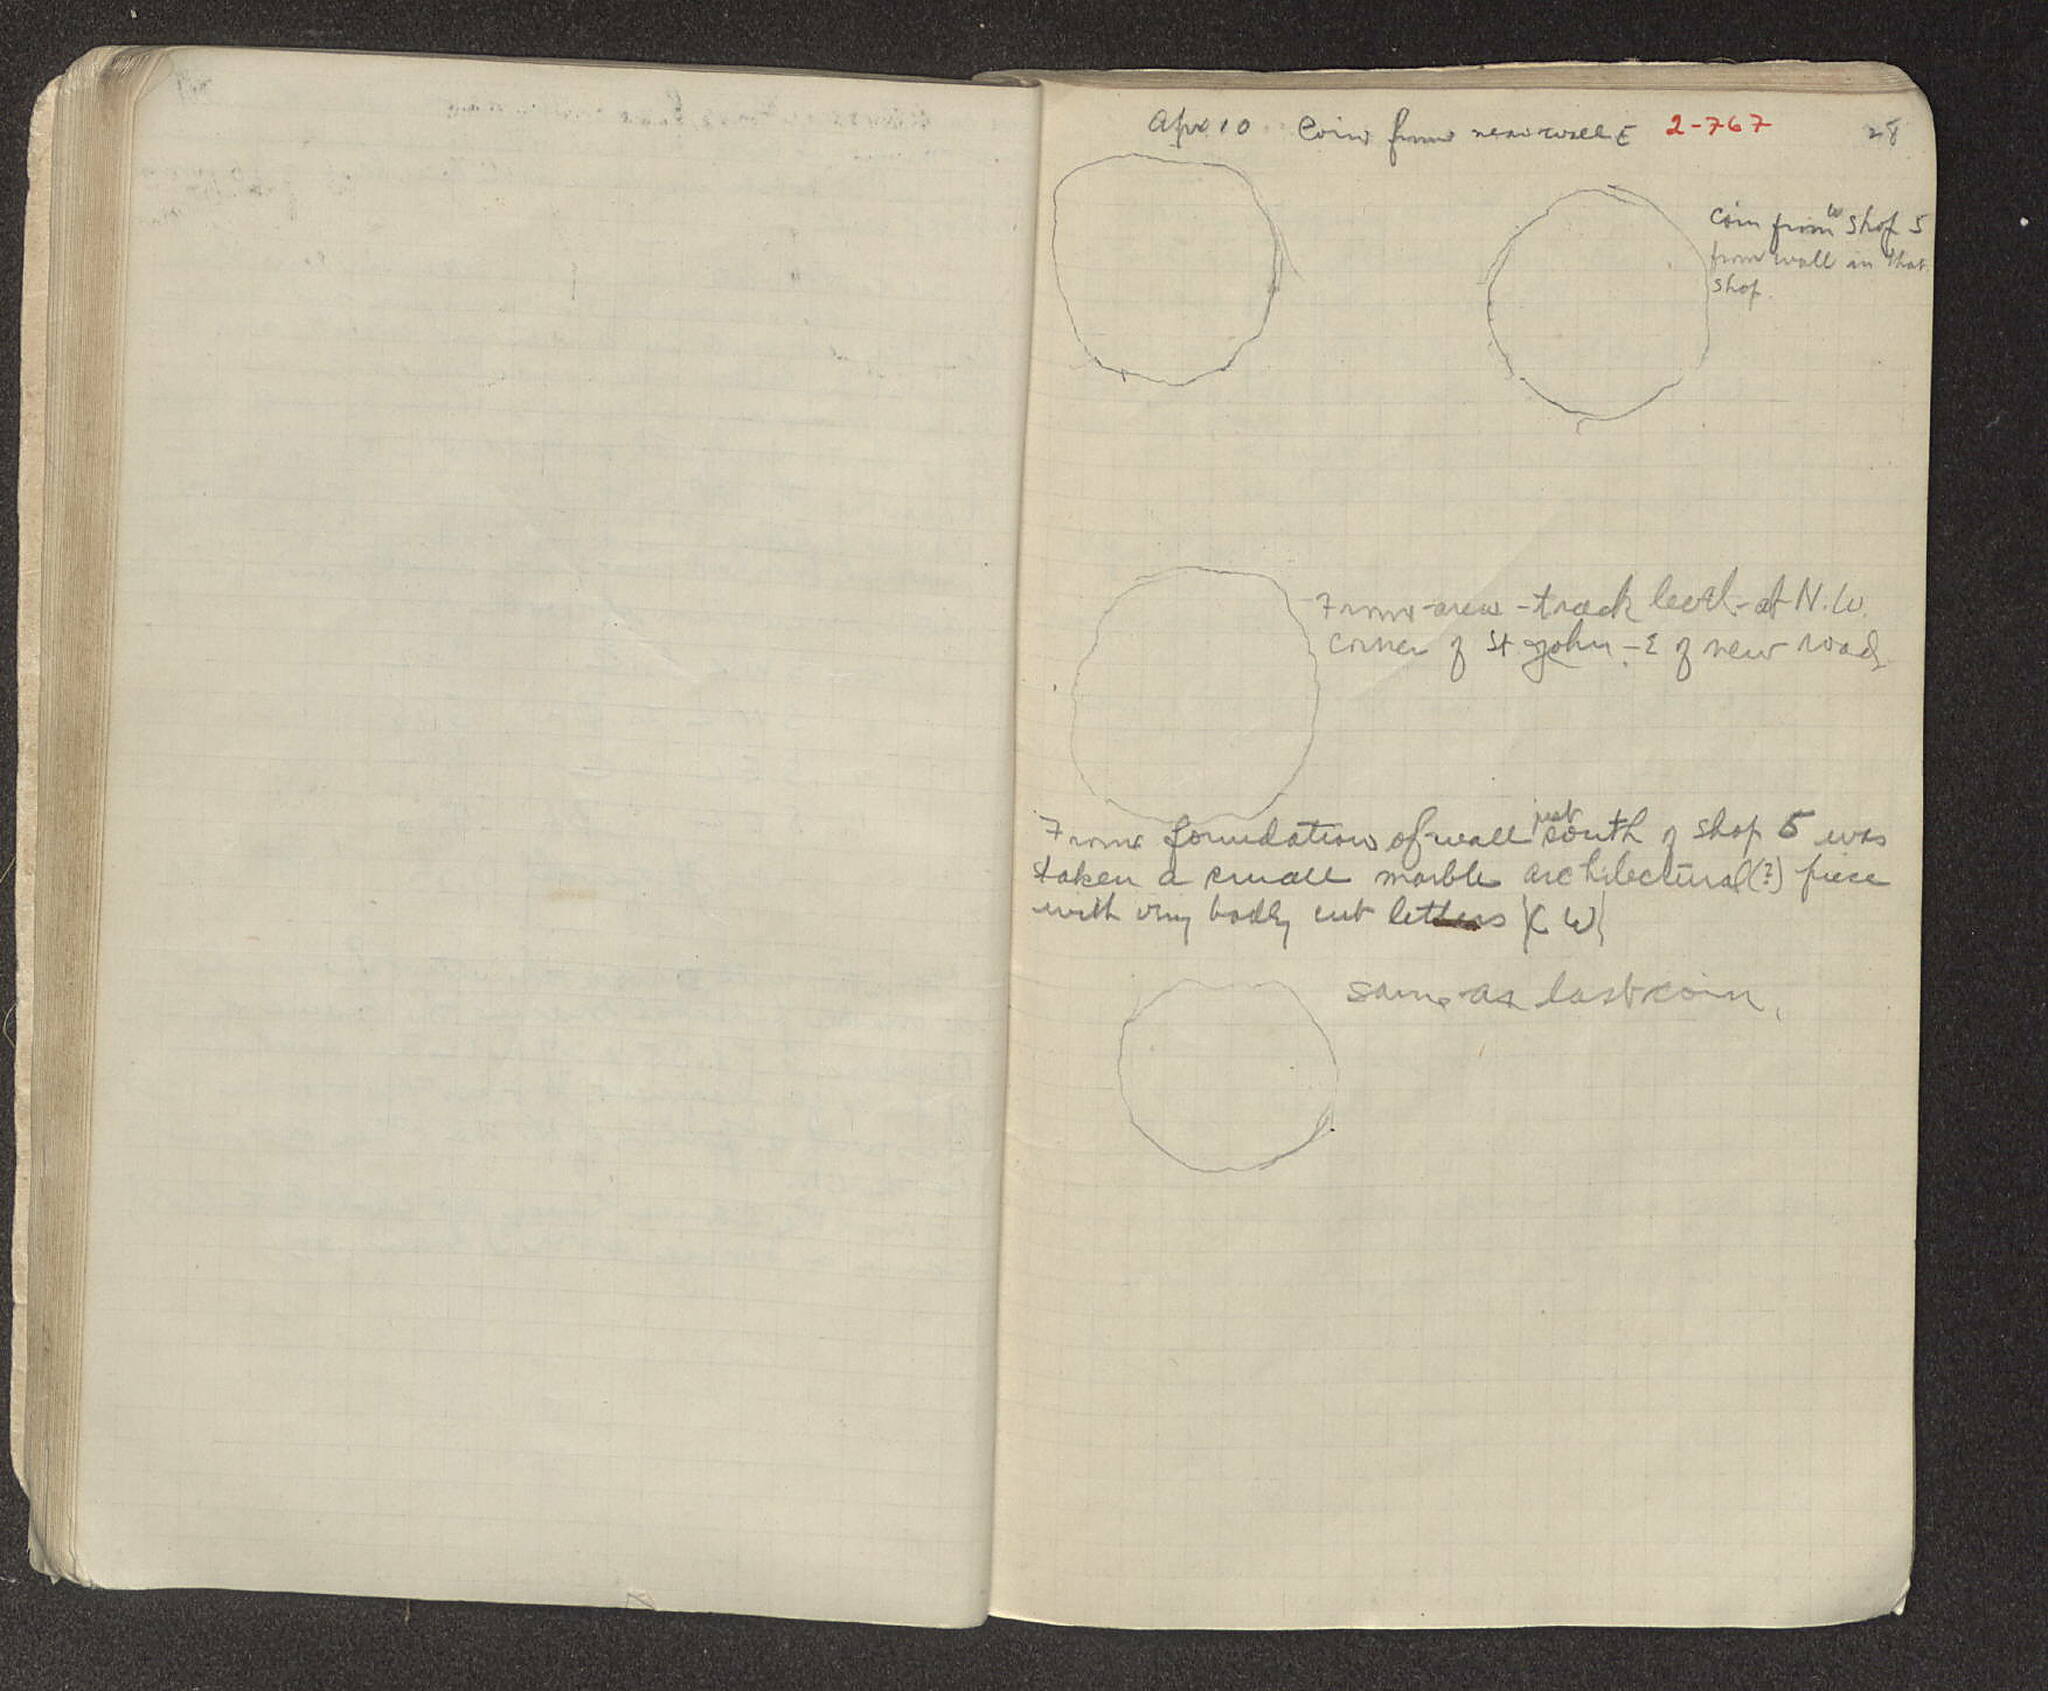 Apr 10 Coin from near wall E 2-767 28
Coin from W Shop 5
from wall in that
shop.
From area - track level - at N.W.
corner of St John - E of new road
From foundation of wall just south of shop 5 was
taken a small marble architectural (?) piece
with very badly cut letters
same as last coin.